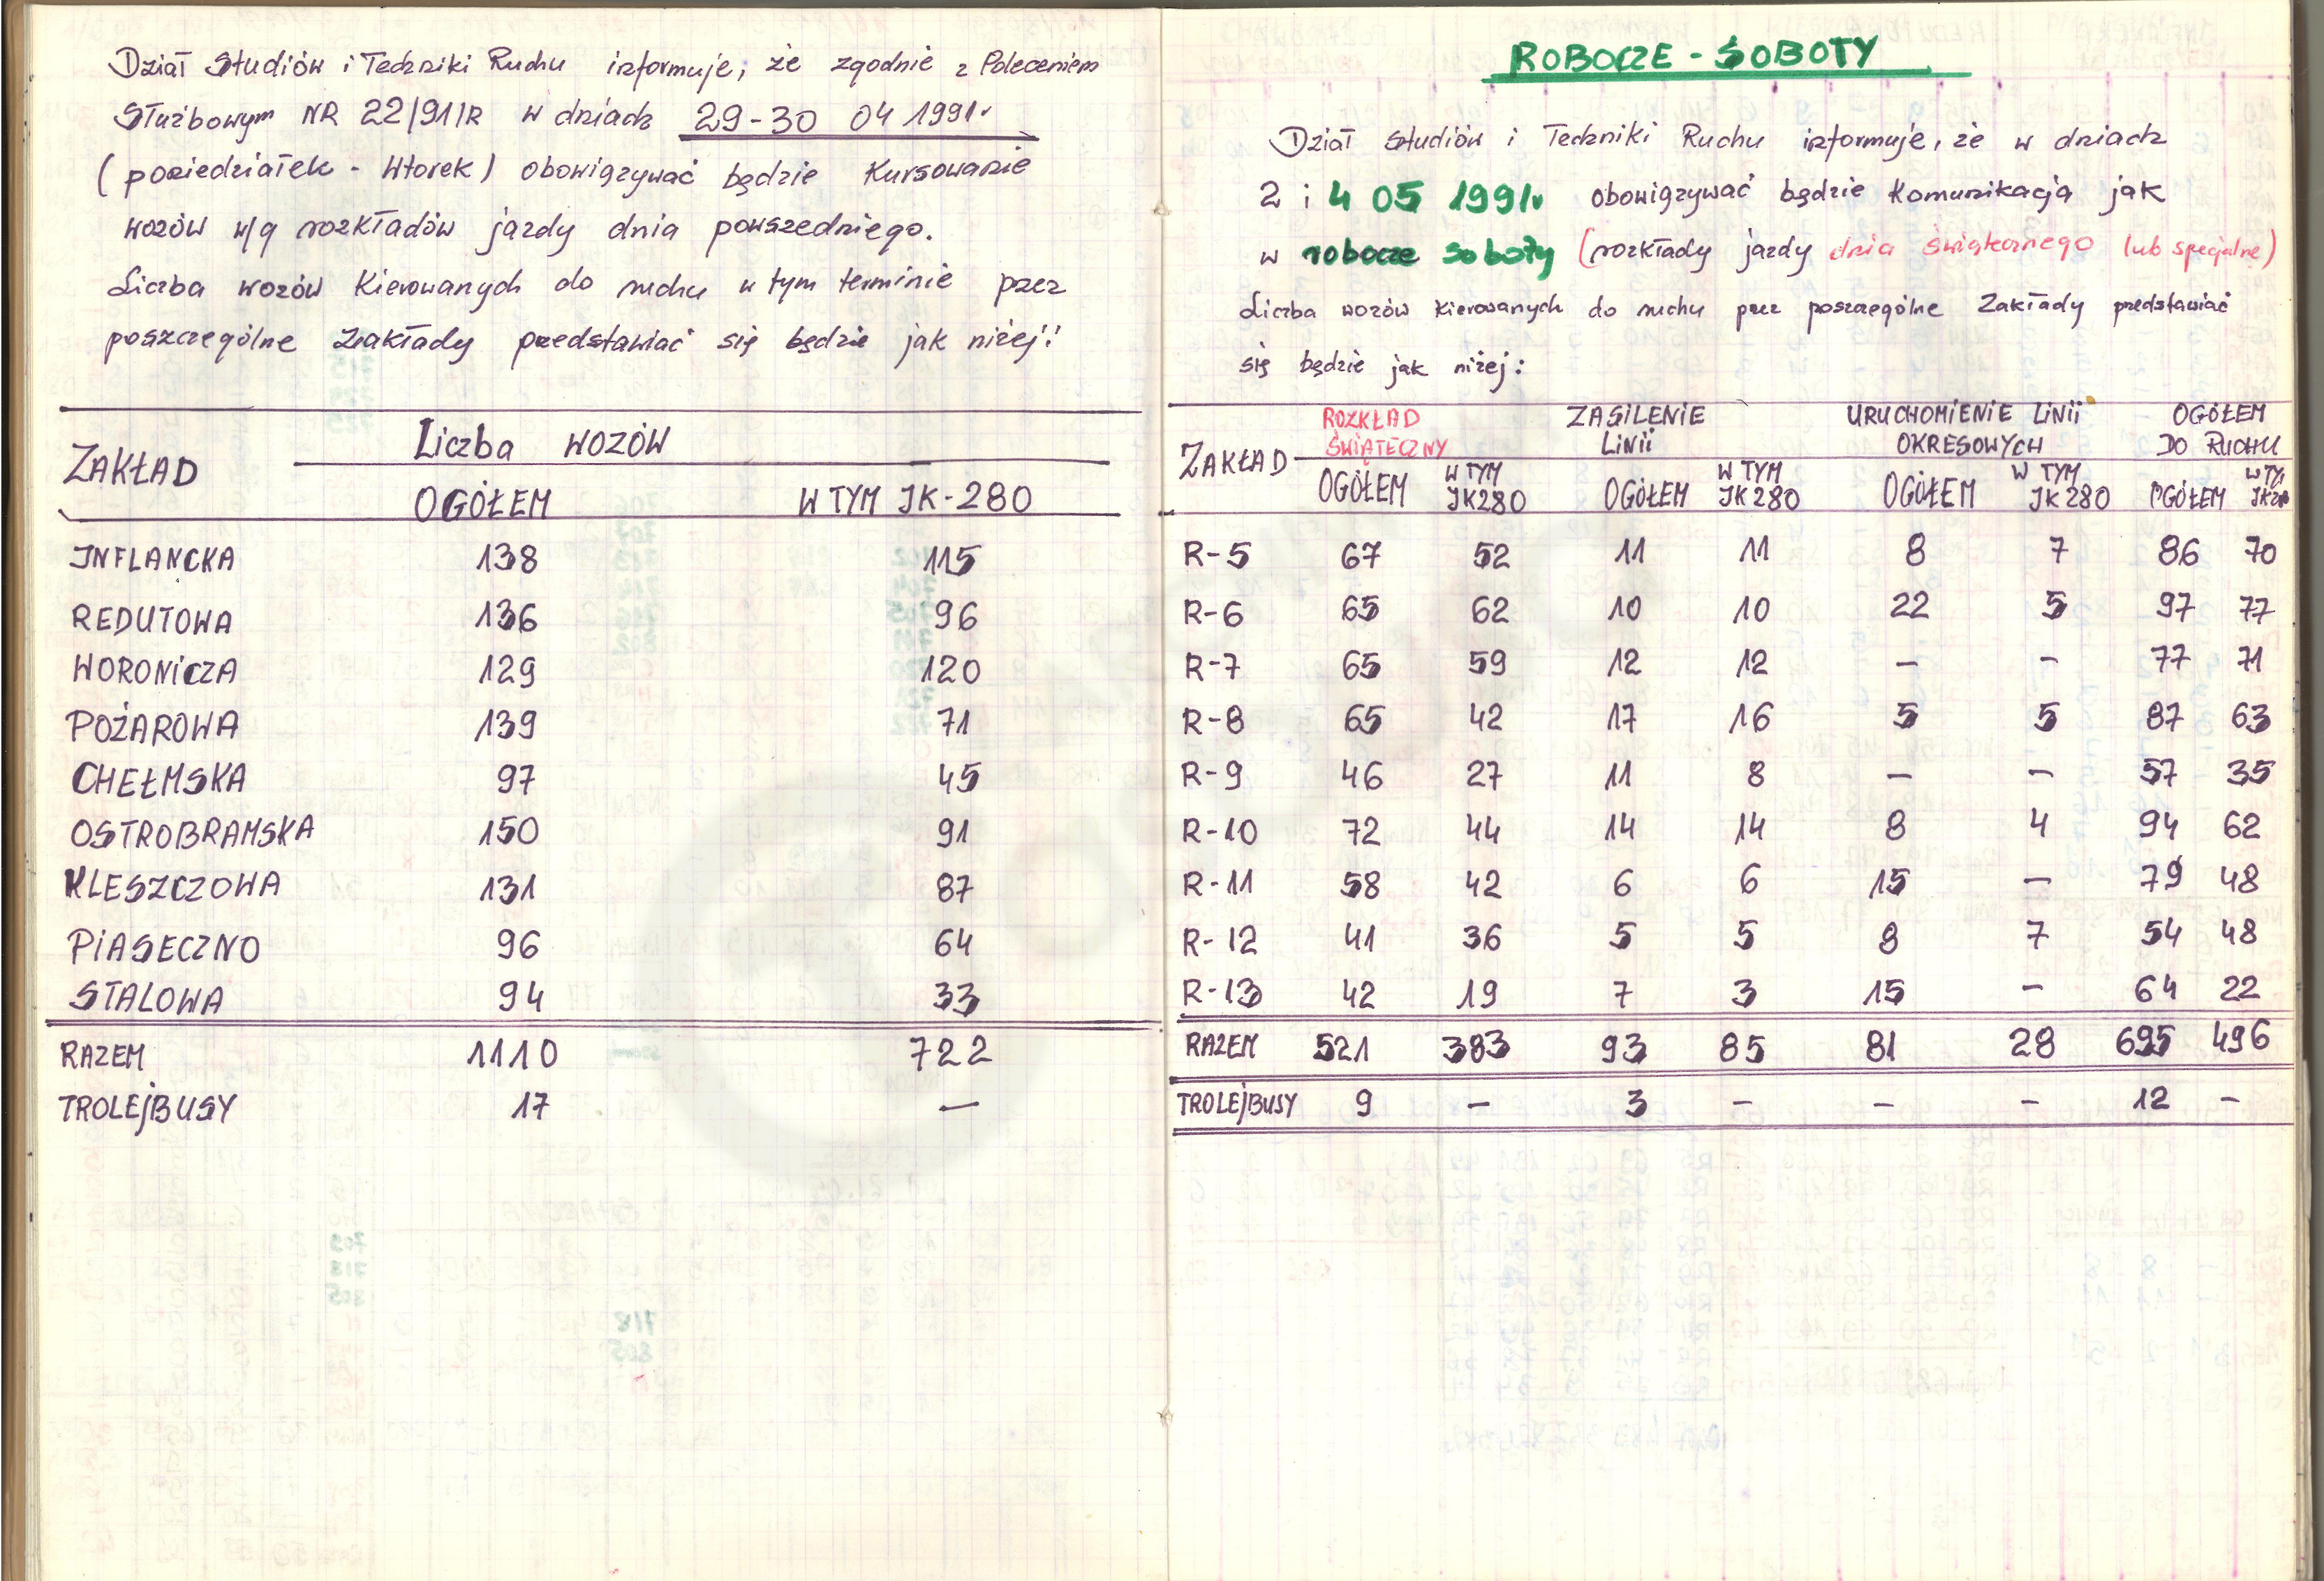 Dział Studiów i Techniki Ruchu informuje, że zgodnie z Poleceniem
Służbowym NR 22/91/R w dniach 29-30 04 1991r
(poniedziałek - Wtorek) obowiązywać będzie Kursowanie
wozów w/g rozkładów jazdy dnia powszedniego.
Liczba wozów Kierowanych do ruchu w tym terminie przez
poszczególne Zakłady przedstawiać się będzie jak niżej:
ZAKŁAD Liczba WOZÓW
OGÓŁEM W TYM JK-280
INFLANCKA 138 115
REDUTOWA 136 96
WORONICZA 129 120
POŻAROWA 139 71
CHEŁMSKA 97 45
OSTROBRAMSKA 150 91
KLESZCZOWA 131 87
PIASECZNO 96 64
STALOWA 94 33
RAZEM 1110 722
TROLEJBUSY 17 —
ROBOCZE - SOBOTY
Dział Studiów i Techniki Ruchu informuje, że w dniach
2 i 4 05 1991r obowiązywać będzie Komunikacja jak
w robocze soboty (rozkłady jazdy dnia świątecznego lub specjalne)
Liczba wozów Kierowanych do ruchu przez poszczególne Zakłady przedstawiać
się będzie jak niżej:
ZAKŁAD ROZKŁAD ŚWIĄTECZNY ZASILENIE LINII URUCHOMIENIE LINII OKRESOWYCH OGÓŁEM DO RUCHU
OGÓŁEM W TYM JK280 OGÓŁEM W TYM JK 280 OGÓŁEM W TYM JK 280 OGÓŁEM W TYM JK280
R-5 67 52 11 11 8 7 86 70
R-6 65 62 10 10 22 5 97 77
R-7 65 59 12 12 — — 77 71
R-8 65 42 17 16 5 5 87 63
R-9 46 27 11 8 — — 57 35
R-10 72 44 14 14 8 4 94 62
R-11 58 42 6 6 15 — 79 48
R-12 41 36 5 5 8 7 54 48
R-13 42 19 7 3 15 — 64 22
RAZEM 521 383 93 85 81 28 695 496
TROLEJBUSY 9 — 3 — — — 12 —